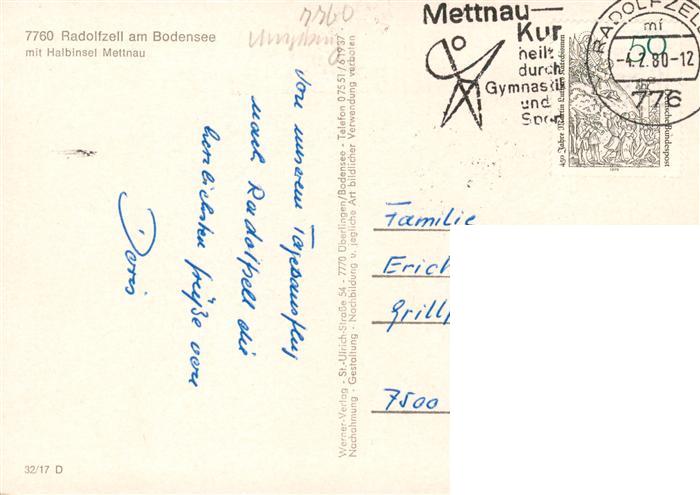 7760 Radolfzell am Bodensee
mit Halbinsel Mettnau
7760
Von unserem Tagesausflug
nach Radolfzell die
herzlichsten Grüße von
Doris
32/17 D
Werner-Verlag - St.-Ulrich-Straße 54 - 7770 Überlingen/Bodensee - Telefon 07551/61937
Nachahmung - Gestaltung - Nachbildung u. jegliche Art bildlicher Verwendung verboten
Mettnau—
Kur
heilt
durch
Gymnastik
und
Sport
RADOLFZEL
mf
-4.2.80-12
776
50
450 Jahre Martin Luther Katechismus
Deutsche Bundespost
1979
Familie
Erich
Grillp
7500